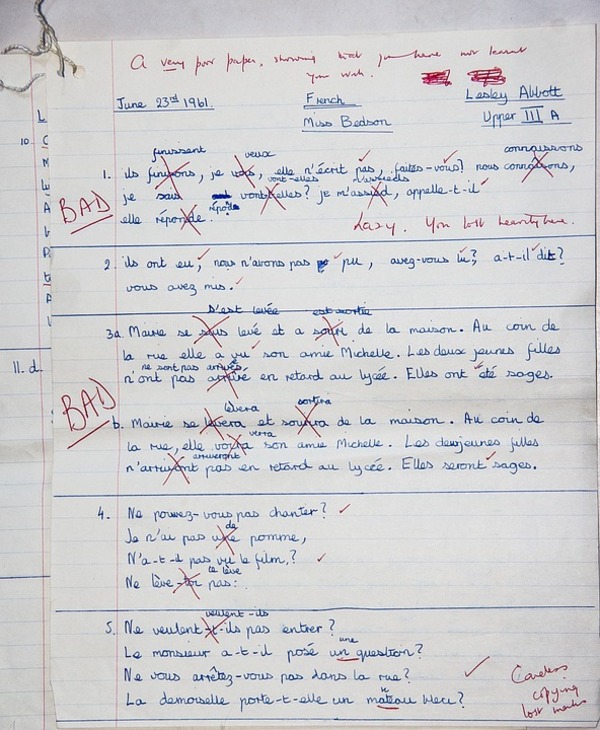 A very poor paper, showing that you have not learnt
your work.
June 23rd 1961.
French
Lesley Abbott
Miss Bedson
Upper III A
finissent
veux
connaissons
1. ils finissons, je vois, elle n'écrit pas, faites-vous? nous connaisons,
vont-elles
m'assieds
je sais vont-elles? je m'assied, appelle-t-il
BAD
répond
elle réponde.
Lazy. You lost heavily here.
2. ils ont eu, nous n'avons pas pu, avez-vous lu? a-t-il dit?
vous avez mis.
s'est levée
est sortie
3a. Marie se levé et a de la maison. Au coin de
la rue elle a vu son amie Michelle. Les deux jeunes filles
ne sont pas arrivées
n'ont pas arrivé en retard au lycée. Elles ont été sages.
BAD
lèvera
sortira
b. Marie se levera et de la maison. Au coin de
verra
la rue, elle son amie Michelle. Les deux jeunes filles
arriveront
n' pas en retard au lycée. Elles seront sages.
4. Ne pouvez-vous pas chanter?
de
Je n'ai pas une pomme,
N'a-t-il pas vu le film?
te lève
Ne lève-toi pas.
veulent-ils
5. Ne veulent-t-ils pas entrer?
une
Le monsieur a-t-il posé un question?
Ne vous arrêtez-vous pas dans la rue?
La demoiselle porte-t-elle un mateau bleu?
Careless
copying
lost marks
10
11. d.